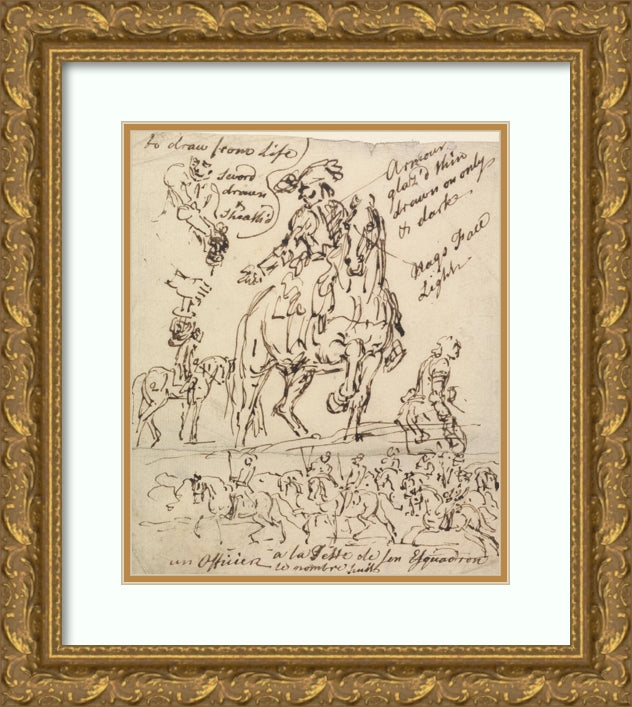 to draw from Life
Sword
drawn
&
Sheath'd
Armour
glaz'd thin
drawn on only
& dark
Nags Face
Light
un Officier a la Tette de son Esquadron
le nombre huit